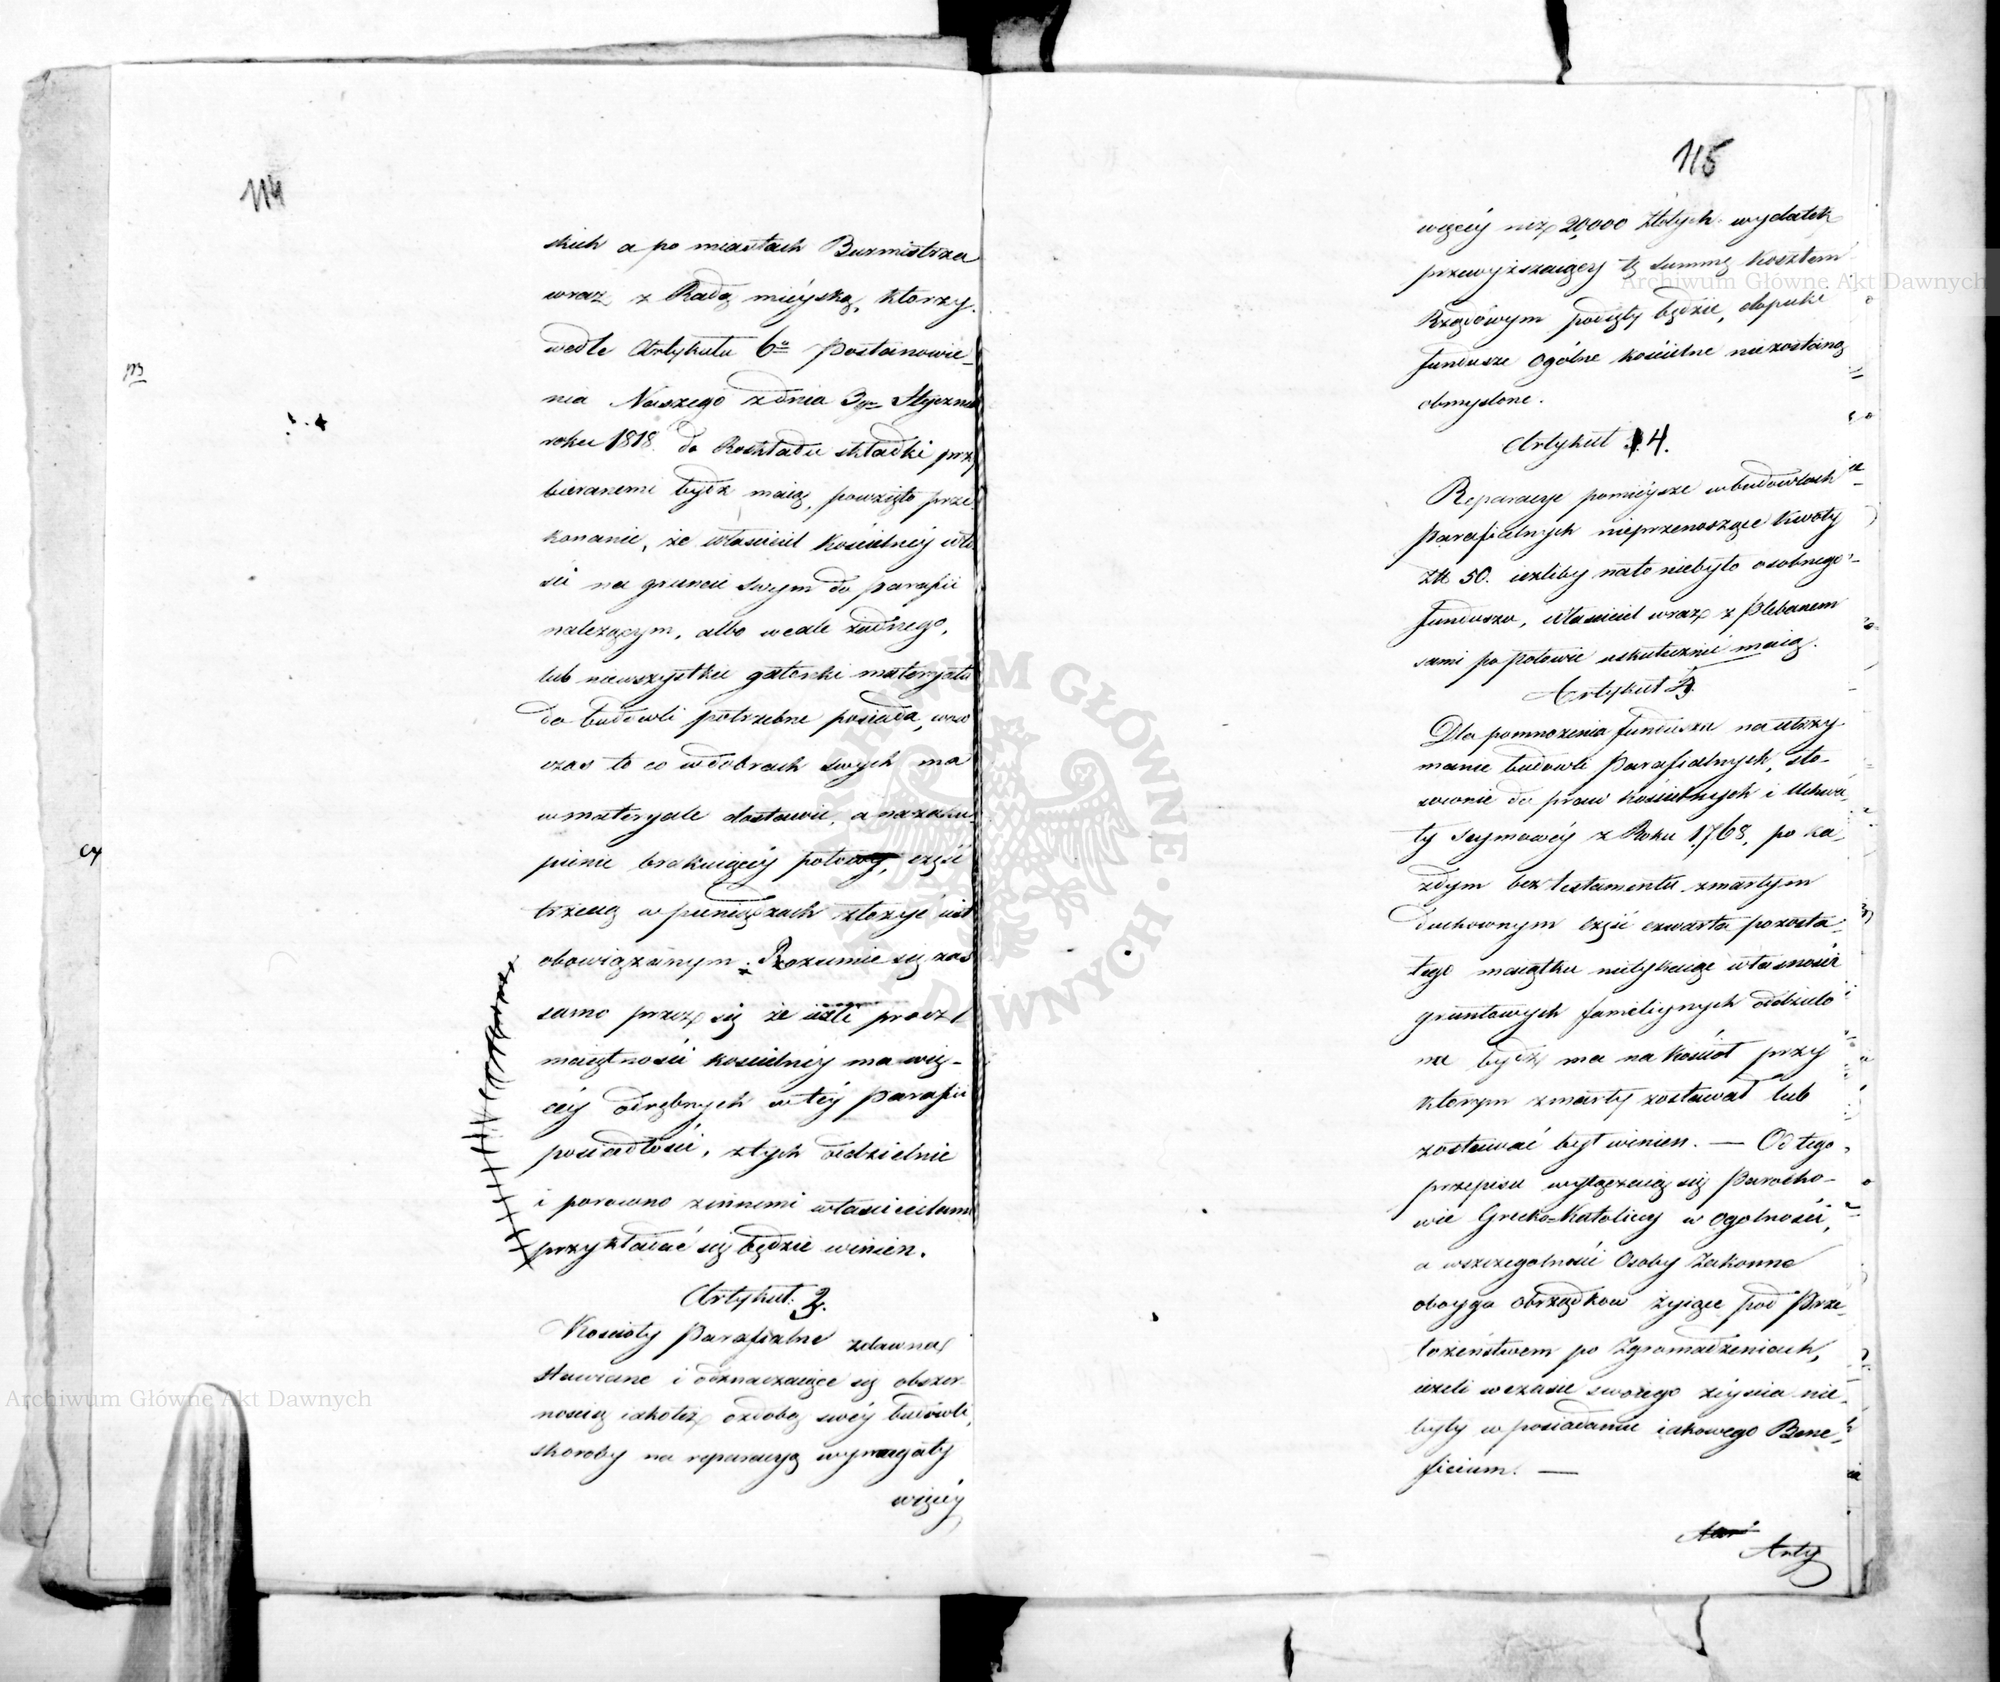 114
skich a po miastach Burmistrza
wraz z Radą mieyską, ktorzy
wedle Artykułu 6º Postanowie=
nia Naszego z dnia 3go Stycznia
roku 1818 do Roskładu składki przy
bieranemi bydź maią, powzięło prze
konanie, że właściciel Kościelnéy wło
ści na gruncie swym do parafii
należącym, albo wcale żadnego,
lub niewszystkie gatonki materyału
do budowli potrzebne posiada, wów
czas to co w dobrach swych ma
w materyale dostawić, a na zaku=
pienie brakuiącéy połowy, część
trzecią w pieniądzach złożyć iest
obowiązanym. Rozumie się zaś
samo przez się że ieżli prócz
maiętności kościelnéy ma wię-
céy odrębnych w téy Parafii
posiadłości, z tych oddzielnie
i porowno z innemi właścicielami
przykładać się będzie winien.
Artykuł. 3.
Kościoły Parafialne zdawna
stawiane i odznaczaiące się obszer-
nością iakoteż ozdobą swéy budowli,
skoroby na reparacyą wymagały
więcéy
115
więcéy niż 20,000 Złotych wydatek
przewyższaiący tę summę kosztem
Rządowym podięty będzie, dopuki
fundusze ogólne kościelne nie zostaną
obmyślone.
Artykuł 4.
Reparacye pomieysze w budowlach
Parafialnych nieprzenoszące kwoty
Zł 50. ieżliby na to niebyło osobnego
funduszu, właściciel wraz z Plebanem
sami po połowie uskutecznić maią.
Artykuł
Dla pomnożenia funduszu na utrzy
manie budowli Parafialnych, sto-
sownie do praw kościelnych i Uchwa,
ły Seymowéy z Roku 1768, po ka,
żdym bez testamentu zmarłym
duchownym część czwarta pozosta,
łego maiątku nietykaiąc własności
gruntowych familiynych oddzielo
na bydź ma na kościoł przy
którym zmarły zostawał lub
zostawać był winien. — Od tego
przepisu wyłączaią się Parocho-
wie Grecko=Katoliccy w ogolności,
a w szczególności Osoby Zakonne
oboyga obrządkow żyiące pod Prze
łożeństwem po Zgromadzeniach,
ieżeli w czasie swoiego życia nie
były w posiadaniu iakowego Bene,
ficium. —
Arty
Archiwum Główne Akt Dawnych
Archiwum Główne Akt Dawnych
ARCHIWUM GŁÓWNE AKT DAWNYCH